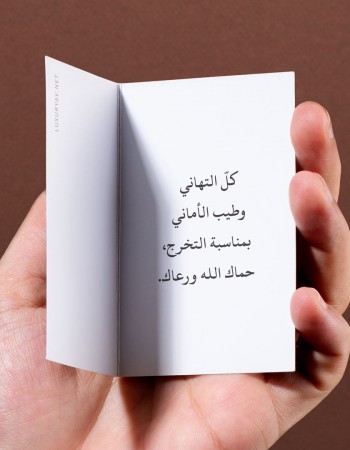 كلّ التهاني
وطيب الأماني
بمناسبة التخرج،
حماك الله ورعاك.
LUXURYBY.NET